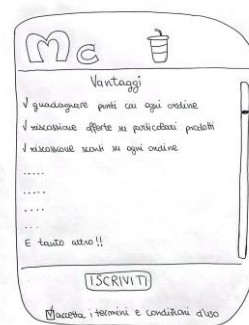 Mc
Vantaggi
√ guadagnare punti con ogni ordine
√ riscossione offerte su particolari prodotti
√ riscossione sconti su ogni ordine
.....
.....
....
...
E tanto altro!!
ISCRIVITI
accetta i termini e condizioni d'uso